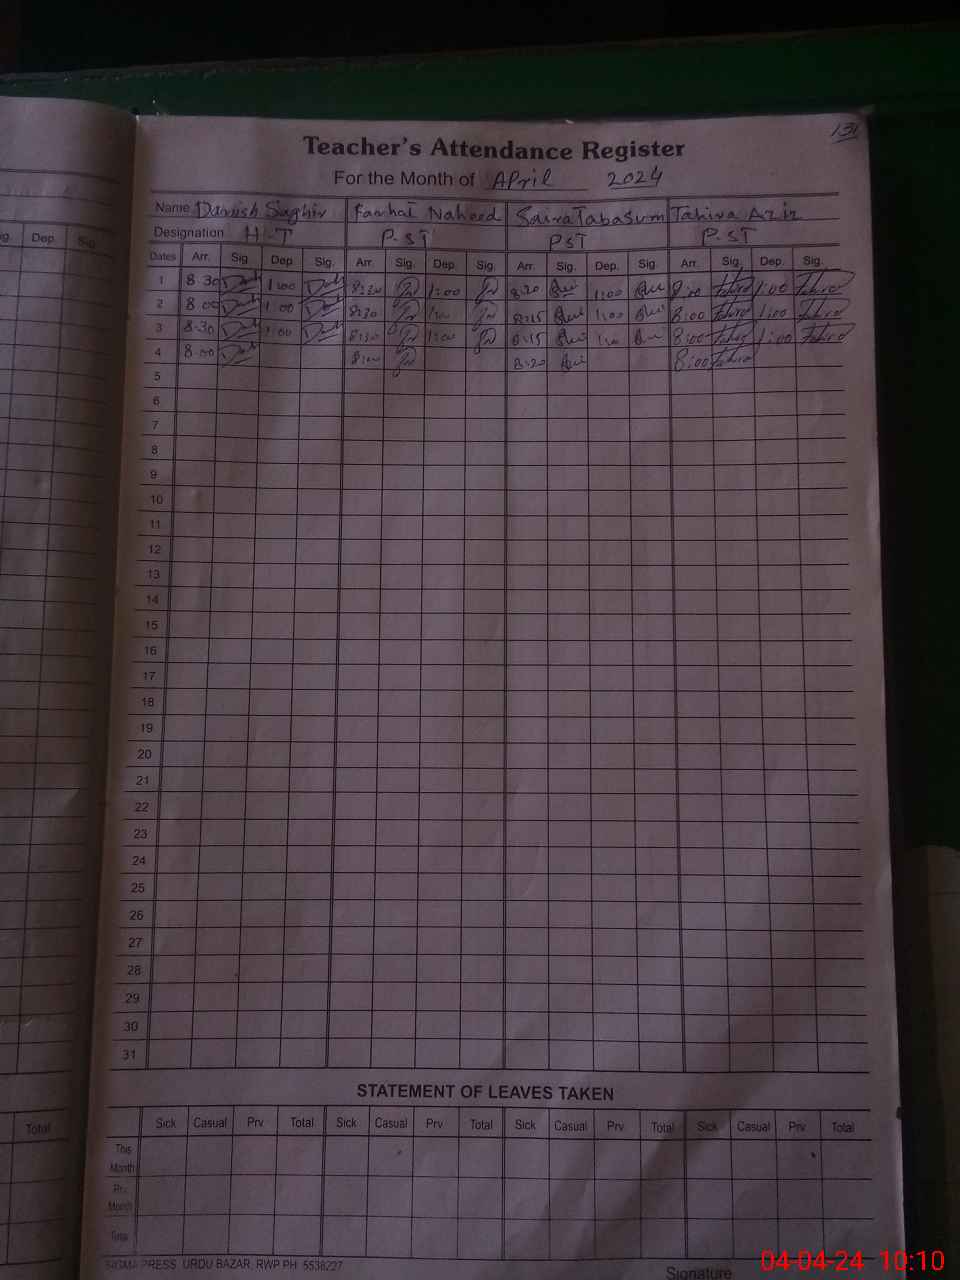 131
Teacher's Attendance Register
For the Month of APril 2024
Name Danish Saghir Farhat Naheed Saira Tabasum Tahira Aziz
Designation H-T P.ST PST P.ST
Dates Arr. Sig. Dep. Sig. Arr. Sig. Dep. Sig. Arr. Sig. Dep. Sig. Arr. Sig. Dep. Sig.
1 8.30 1:00 8:20 1:00 8:20 1:00 8:00 1:00
2 8.00 1:00 8:20 1:00 8:15 1:00 8:00 1:00
3 8.30 1:00 1:00 8:15 1:00 8:00 1:00
4 8.00 8:00 8:20 8:00
5
6
7
8
9
10
11
12
13
14
15
16
17
18
19
20
21
22
23
24
25
26
27
28
29
30
31
STATEMENT OF LEAVES TAKEN
Sick Casual Prv. Total Sick Casual Prv. Total Sick Casual Prv. Total Sick Casual Prv. Total
This Month
Pr. Month
Total
SIGMA PRESS, URDU BAZAR, RWP PH: 5538227
Signature
Sig. Dep. Sig.
Total
04-04-24 10:10